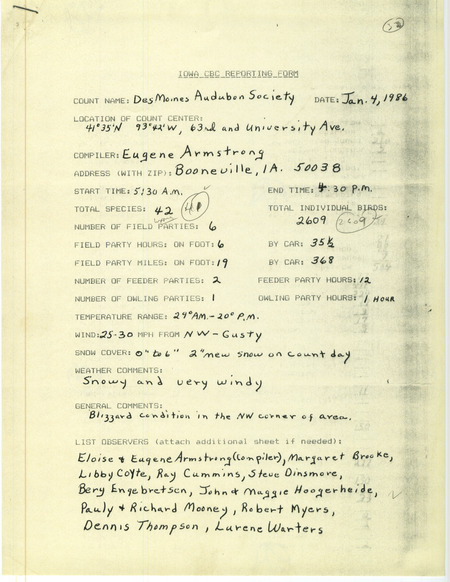 IOWA CBC REPORTING FORM
COUNT NAME: Des Moines Audubon Society DATE: Jan. 4, 1986
LOCATION OF COUNT CENTER:
41°35'N 93°42'W, 63rd and University Ave.
COMPILER: Eugene Armstrong
ADDRESS (WITH ZIP): Booneville, IA. 50038
START TIME: 5:30 A.M. END TIME: 4:30 P.M.
TOTAL SPECIES: 42 41 TOTAL INDIVIDUAL BIRDS:
2609 2609
NUMBER OF FIELD PARTIES: 6
FIELD PARTY HOURS: ON FOOT: 6 BY CAR: 35½
FIELD PARTY MILES: ON FOOT: 19 BY CAR: 368
NUMBER OF FEEDER PARTIES: 2 FEEDER PARTY HOURS: 12
NUMBER OF OWLING PARTIES: 1 OWLING PARTY HOURS: 1 HOUR
TEMPERATURE RANGE: 29° AM. - 20° P.M.
WIND: 25-30 MPH FROM NW - Gusty
SNOW COVER: 0" to 6" 2" new snow on count day
WEATHER COMMENTS:
Snowy and very windy
GENERAL COMMENTS:
Blizzard condition in the NW corner of area.
LIST OBSERVERS (attach additional sheet if needed):
Eloise & Eugene Armstrong (Compiler), Margaret Brooke,
Libby Coyte, Ray Cummins, Steve Dinsmore,
Bery Engebretsen, John & Maggie Hoogerheide,
Pauly & Richard Mooney, Robert Myers,
Dennis Thompson, Lurene Warters